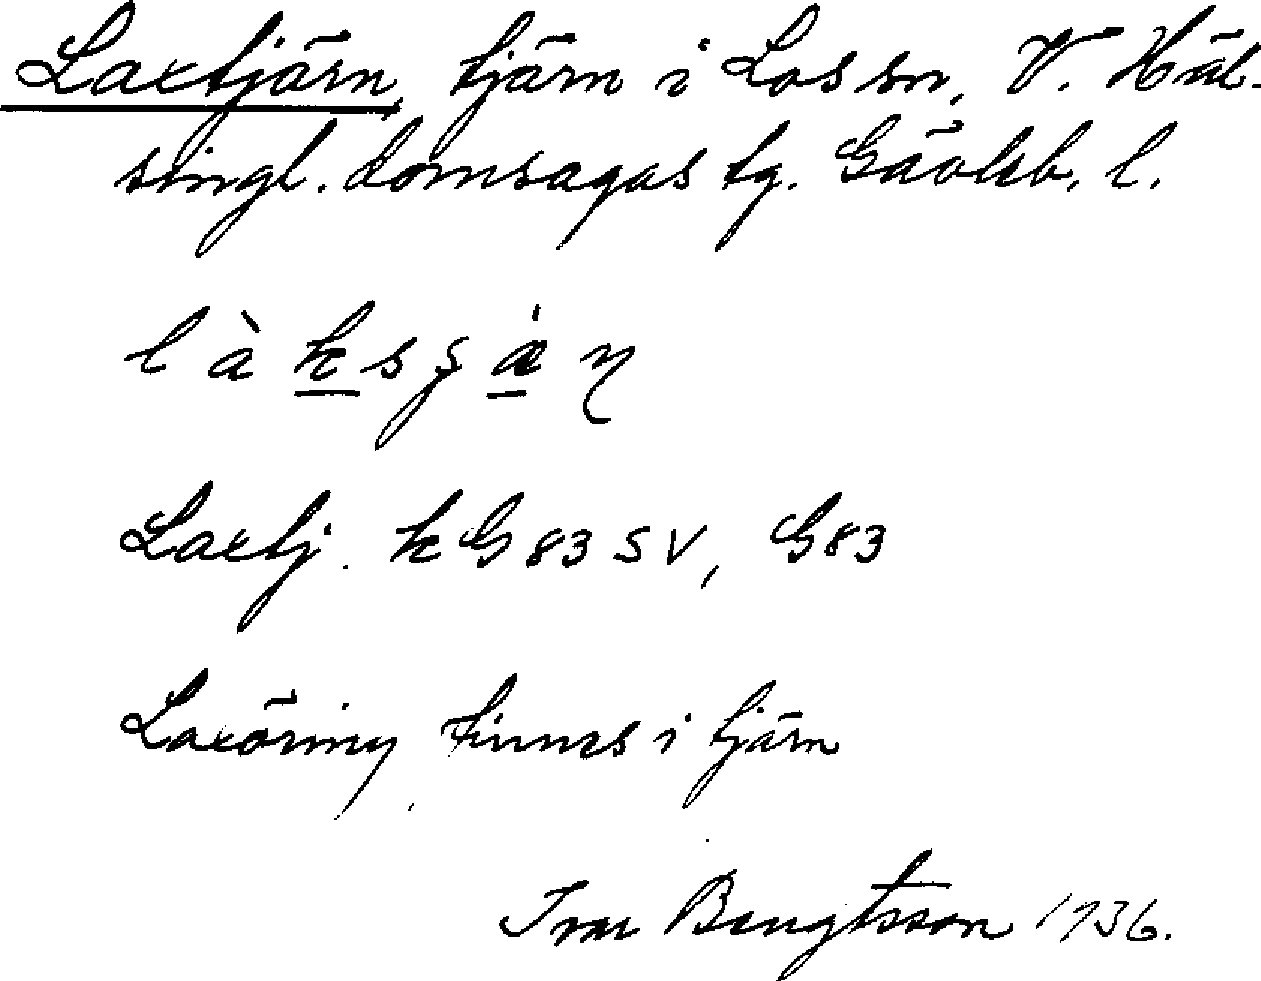 Laxtjärn, tjärn i Los sn, V. Häl-
singl. domsagas tg. Gävleb. l.
l à k s ʂ æ̇ n̥
Laxtj. kG83SV, G83
Laxöring finnes i tjärn
Ivar Bengtsson 1936.